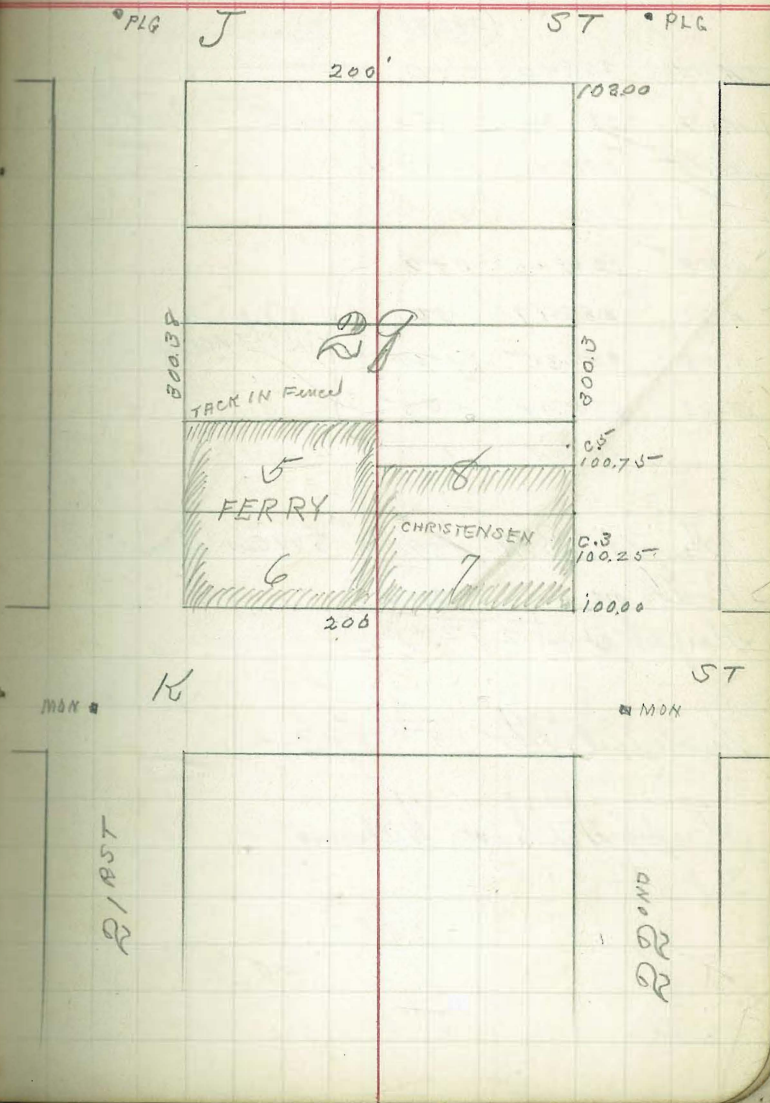 PLG J ST PLG
200'
102.00
29
300.38
300.13
TACK IN Fence
C.5
100.75
5
8
FERRY
CHRISTENSEN
C.3
100.25
6
7
100.00
200
K ST
MON MON
21RST
22OND